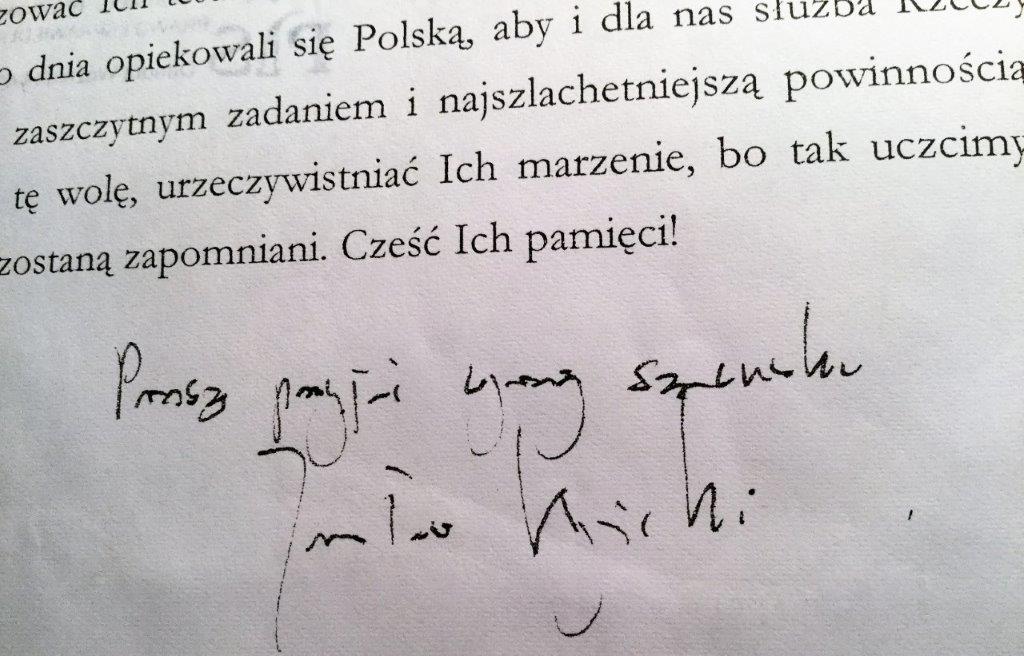 zować Ich
o dnia opiekowali się Polską, aby i dla nas służba Rzeczy
zaszczytnym zadaniem i najszlachetniejszą powinnością
tę wolę, urzeczywistniać Ich marzenie, bo tak uczcimy
zostaną zapomniani. Cześć Ich pamięci!
Proszę przyjąć wyrazy szacunku